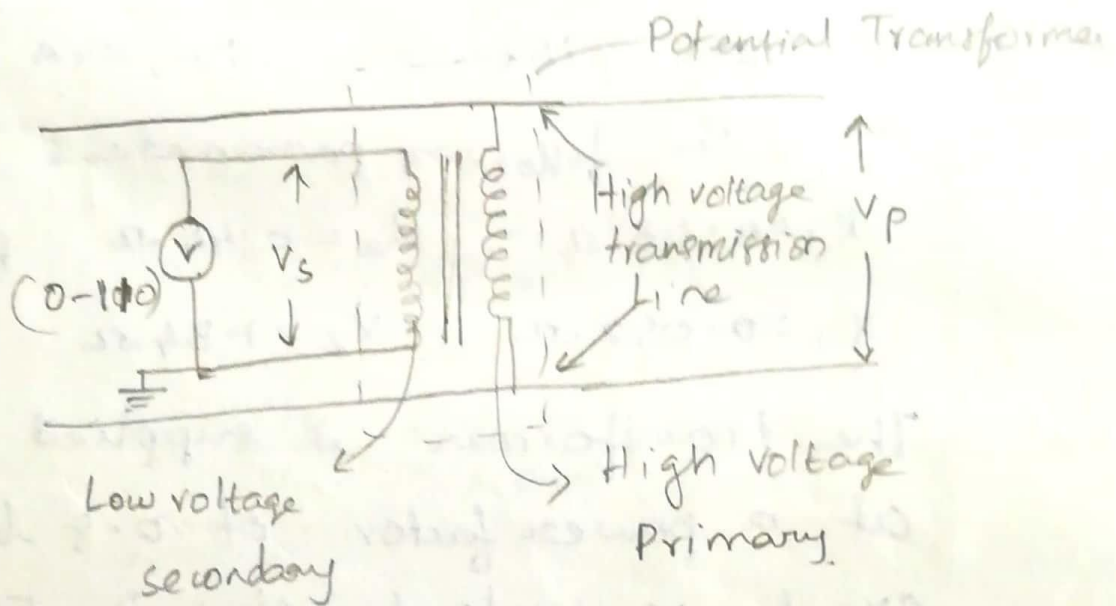 Potential Transformer
High voltage
transmission
Line
Vp
V
Vs
(0-110)
Low voltage
secondary
High voltage
Primary.